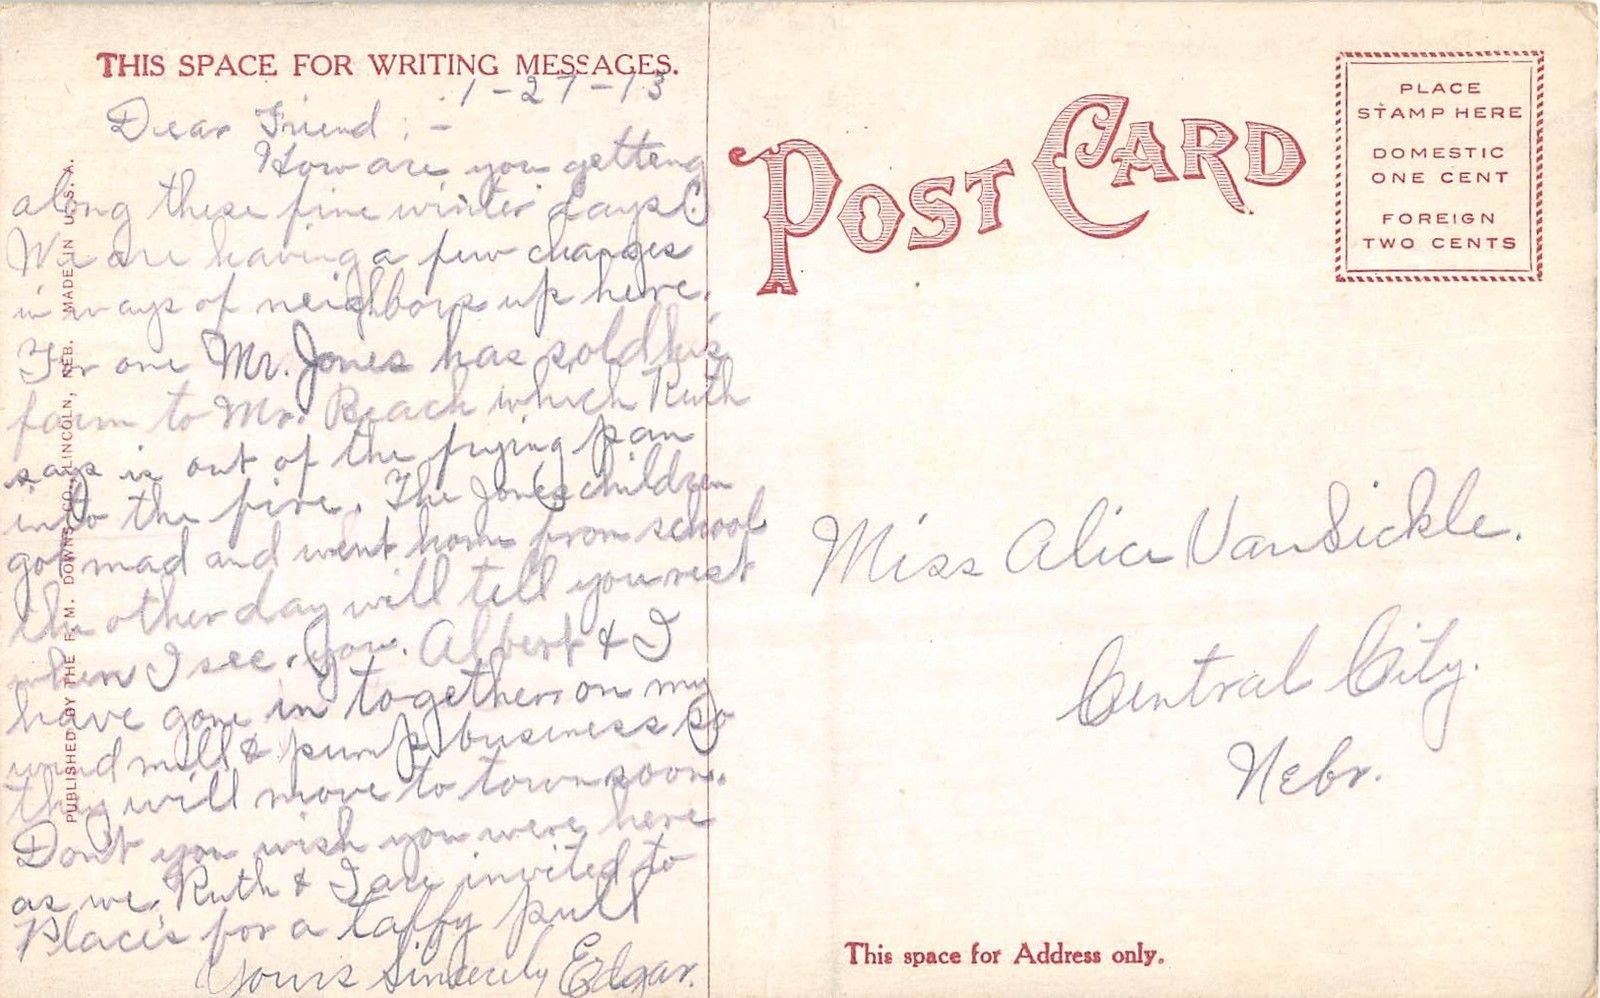 THIS SPACE FOR WRITING MESSAGES.
1-27-13
Dear Friend : -
How are you getting
along these fine winter days?
We are having a few changes
in ways of neighbors up here.
For one Mr. Jones has sold his
farm to Mr. Beach which Ruth
says is out of the frying pan
into the fire. The Jones children
got mad and went home from school
the other day will tell you rest
when I see you. Albert & I
have gone in together on my
wind mill & pump business so
they will move to town soon.
Don't you wish you were here
as we, Ruth & I are invited to
Place's for a taffy pull
Yours Sincerely Edgar.
PUBLISHED BY THE F. M. DOWNS CO., LINCOLN, NEB. MADE IN U. S. A.
POST CARD
PLACE
STAMP HERE
DOMESTIC
ONE CENT
FOREIGN
TWO CENTS
Miss Alice VanSickle.
Central City.
Nebr.
This space for Address only.